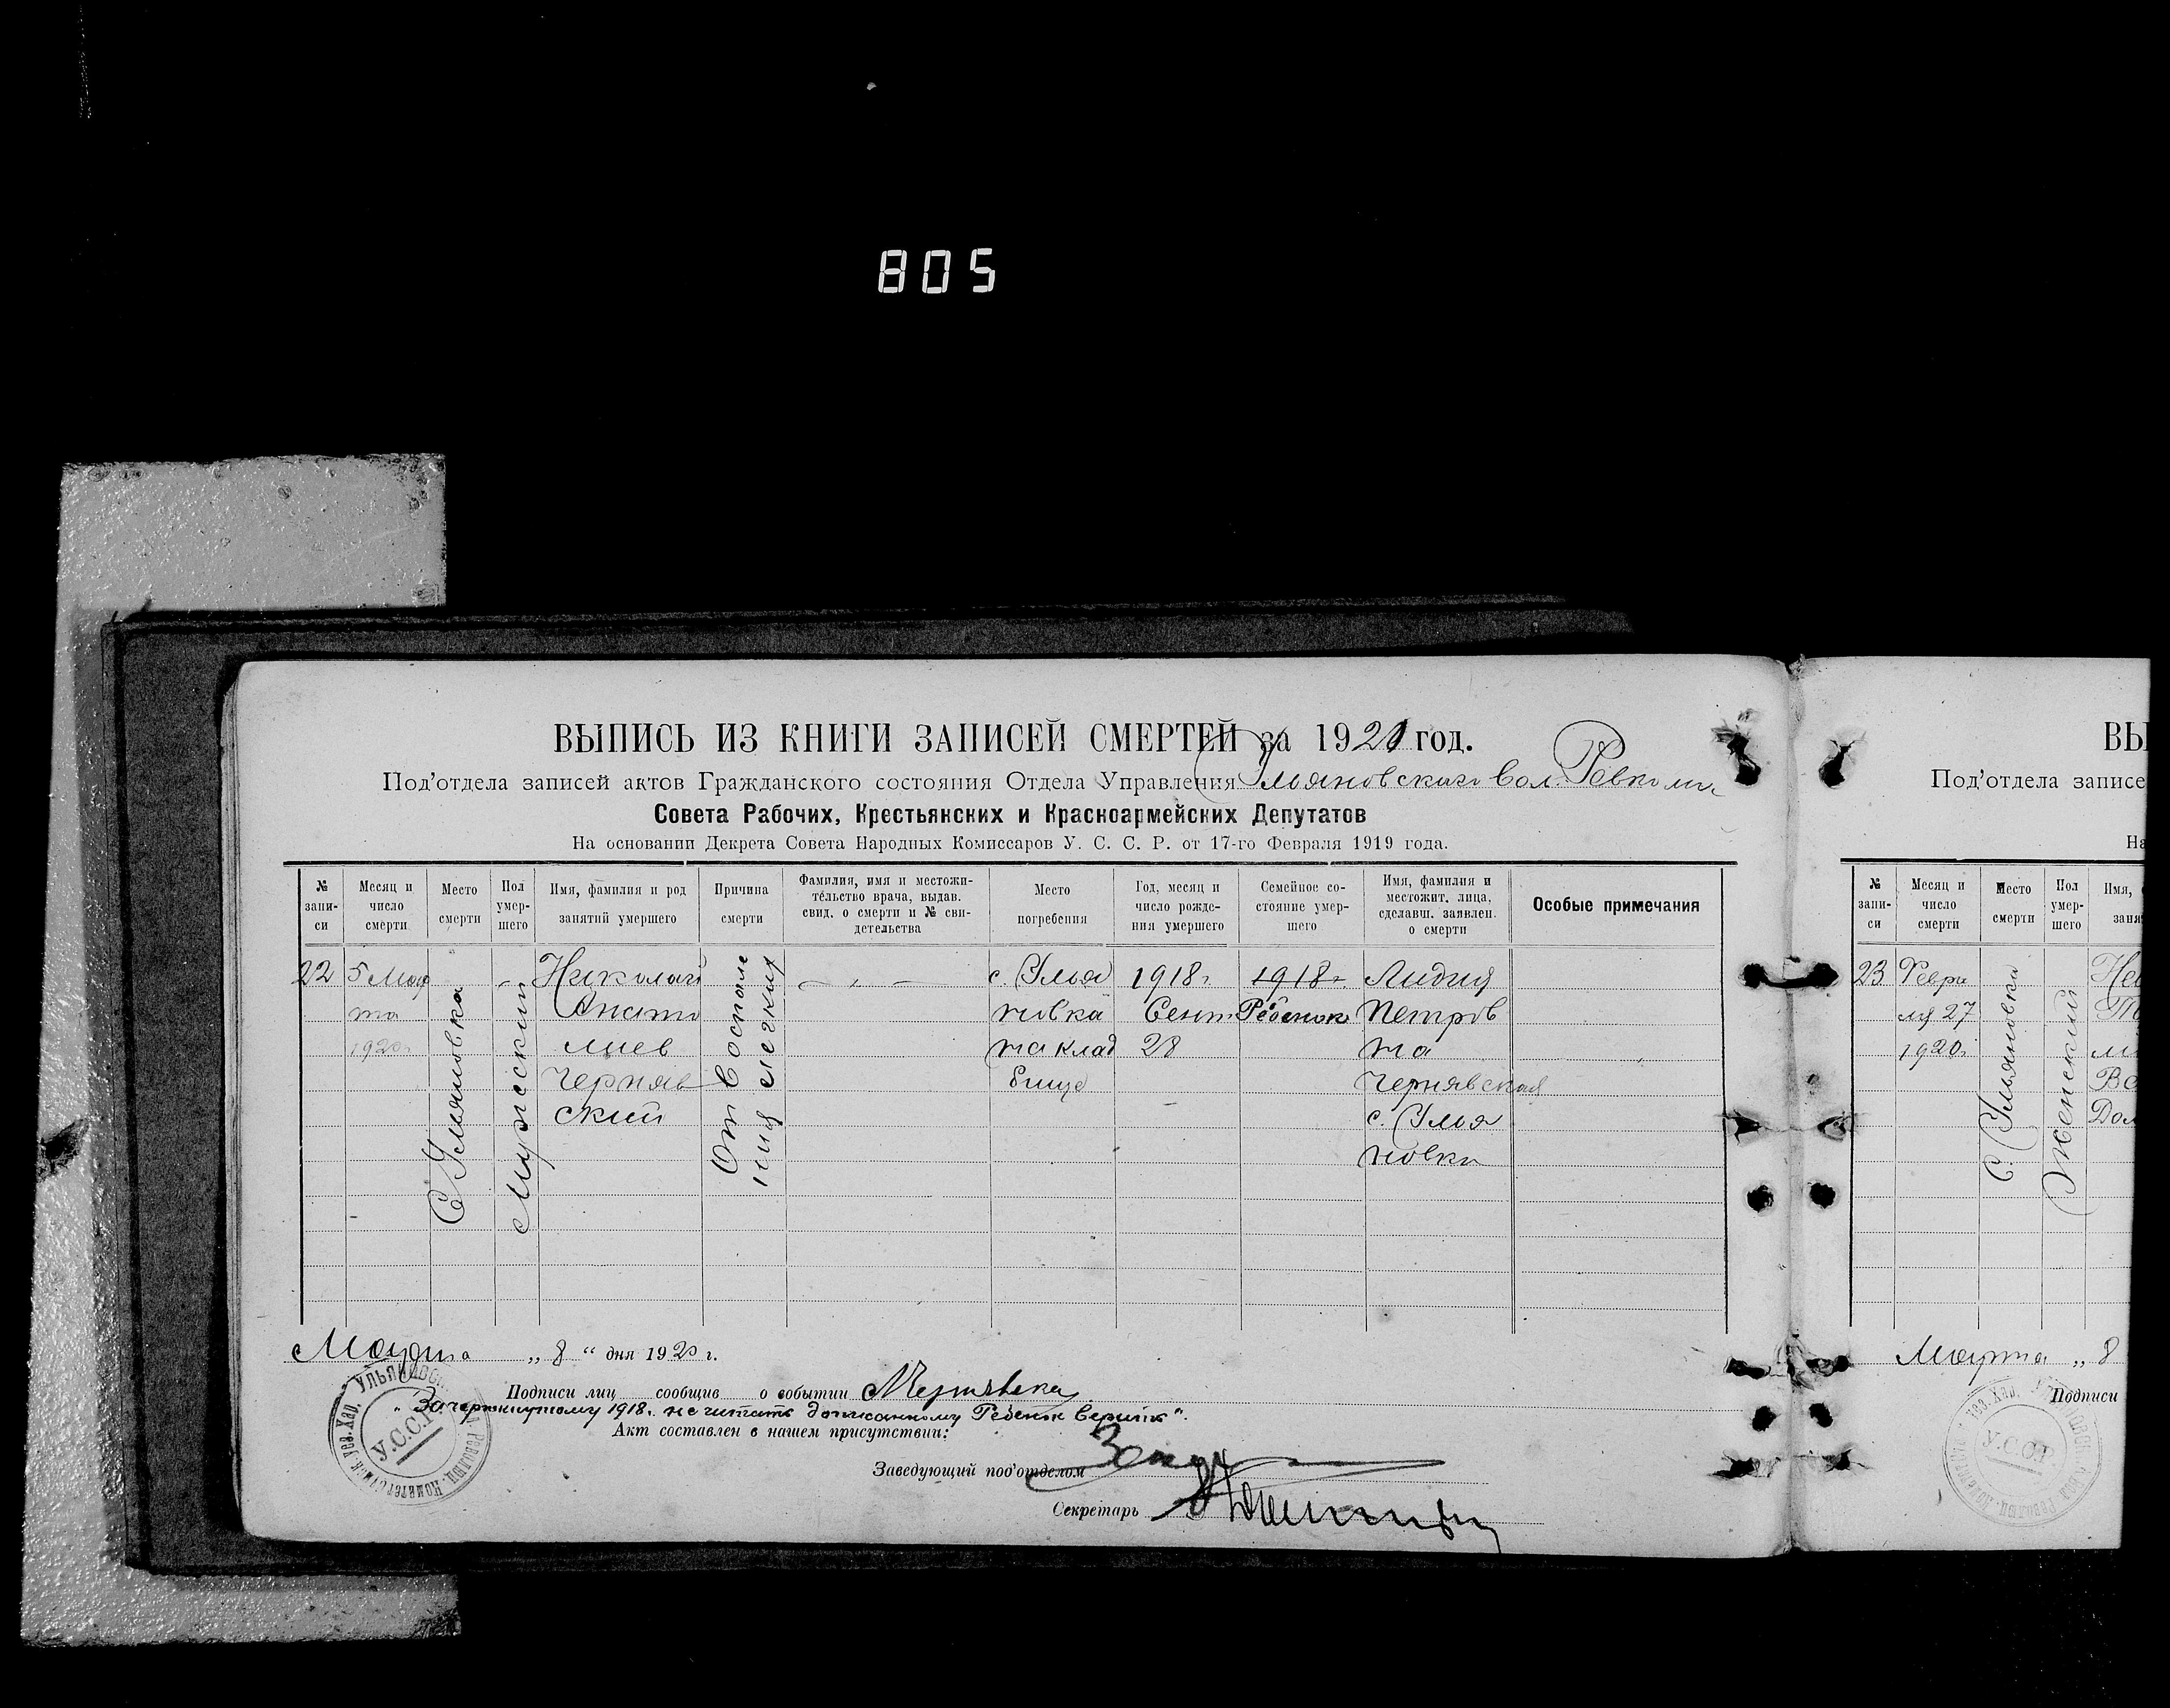 805
ВЫПИСЬ ИЗ КНИГИ ЗАПИСЕЙ СМЕРТЕЙ за 1921 год.
Под'отдела записей актов Гражданского состояния Отдела Управления Ульяновскаго вол. Ревкома
Совета Рабочих, Крестьянских и Красноармейских Депутатов
На основании Декрета Совета Народных Комиссаров У. С. С. Р. от 17-го Февраля 1919 года.
№ запи-
си
Месяц и
число
смерти
Место
смерти
Пол
умер-
шего
Имя, фамилия и род
занятий умершего
Причина
смерти
Фамилия, имя и местожи-
тельство врача, выдав.
свид. о смерти и № сви-
детельства
Место
погребения
Год, месяц и
число рожде-
ния умершего
Семейное со-
стояние умер-
шего
Имя, фамилия и
местожит. лица,
сделавш. заявлен.
о смерти
Особые примечания
22
5 Мар
та
1920г
С Ульяновка
Мужеский
Николай
Анато
лиев
Черняв
ский
От воспале
ния легких
с. Улья
новка
на клад
бище
1918г.
Сент
28
1918г
Ребенок
Лидия
Петров
на
Чернявская
с. Улья
новки
Марта „ 8 “ дня 1920 г.
Подписи лиц сообщив о событии
Зачеркнутому 1918г. не читать дописанному Ребенок верить".
Акт составлен в нашем присутствии:
Заведующий под'отделом
Секретарь
У.С.С.Р.
ВЫ
Под'отдела записе
На
№ запи-
си
Месяц и
число
смерти
Место
смерти
Пол
умер-
шего
Имя,
заня
23
Февра
ля 27
1920г
С. Ульяновка
Женский
Марта „ 8
Подписи
У.С.С.Р.